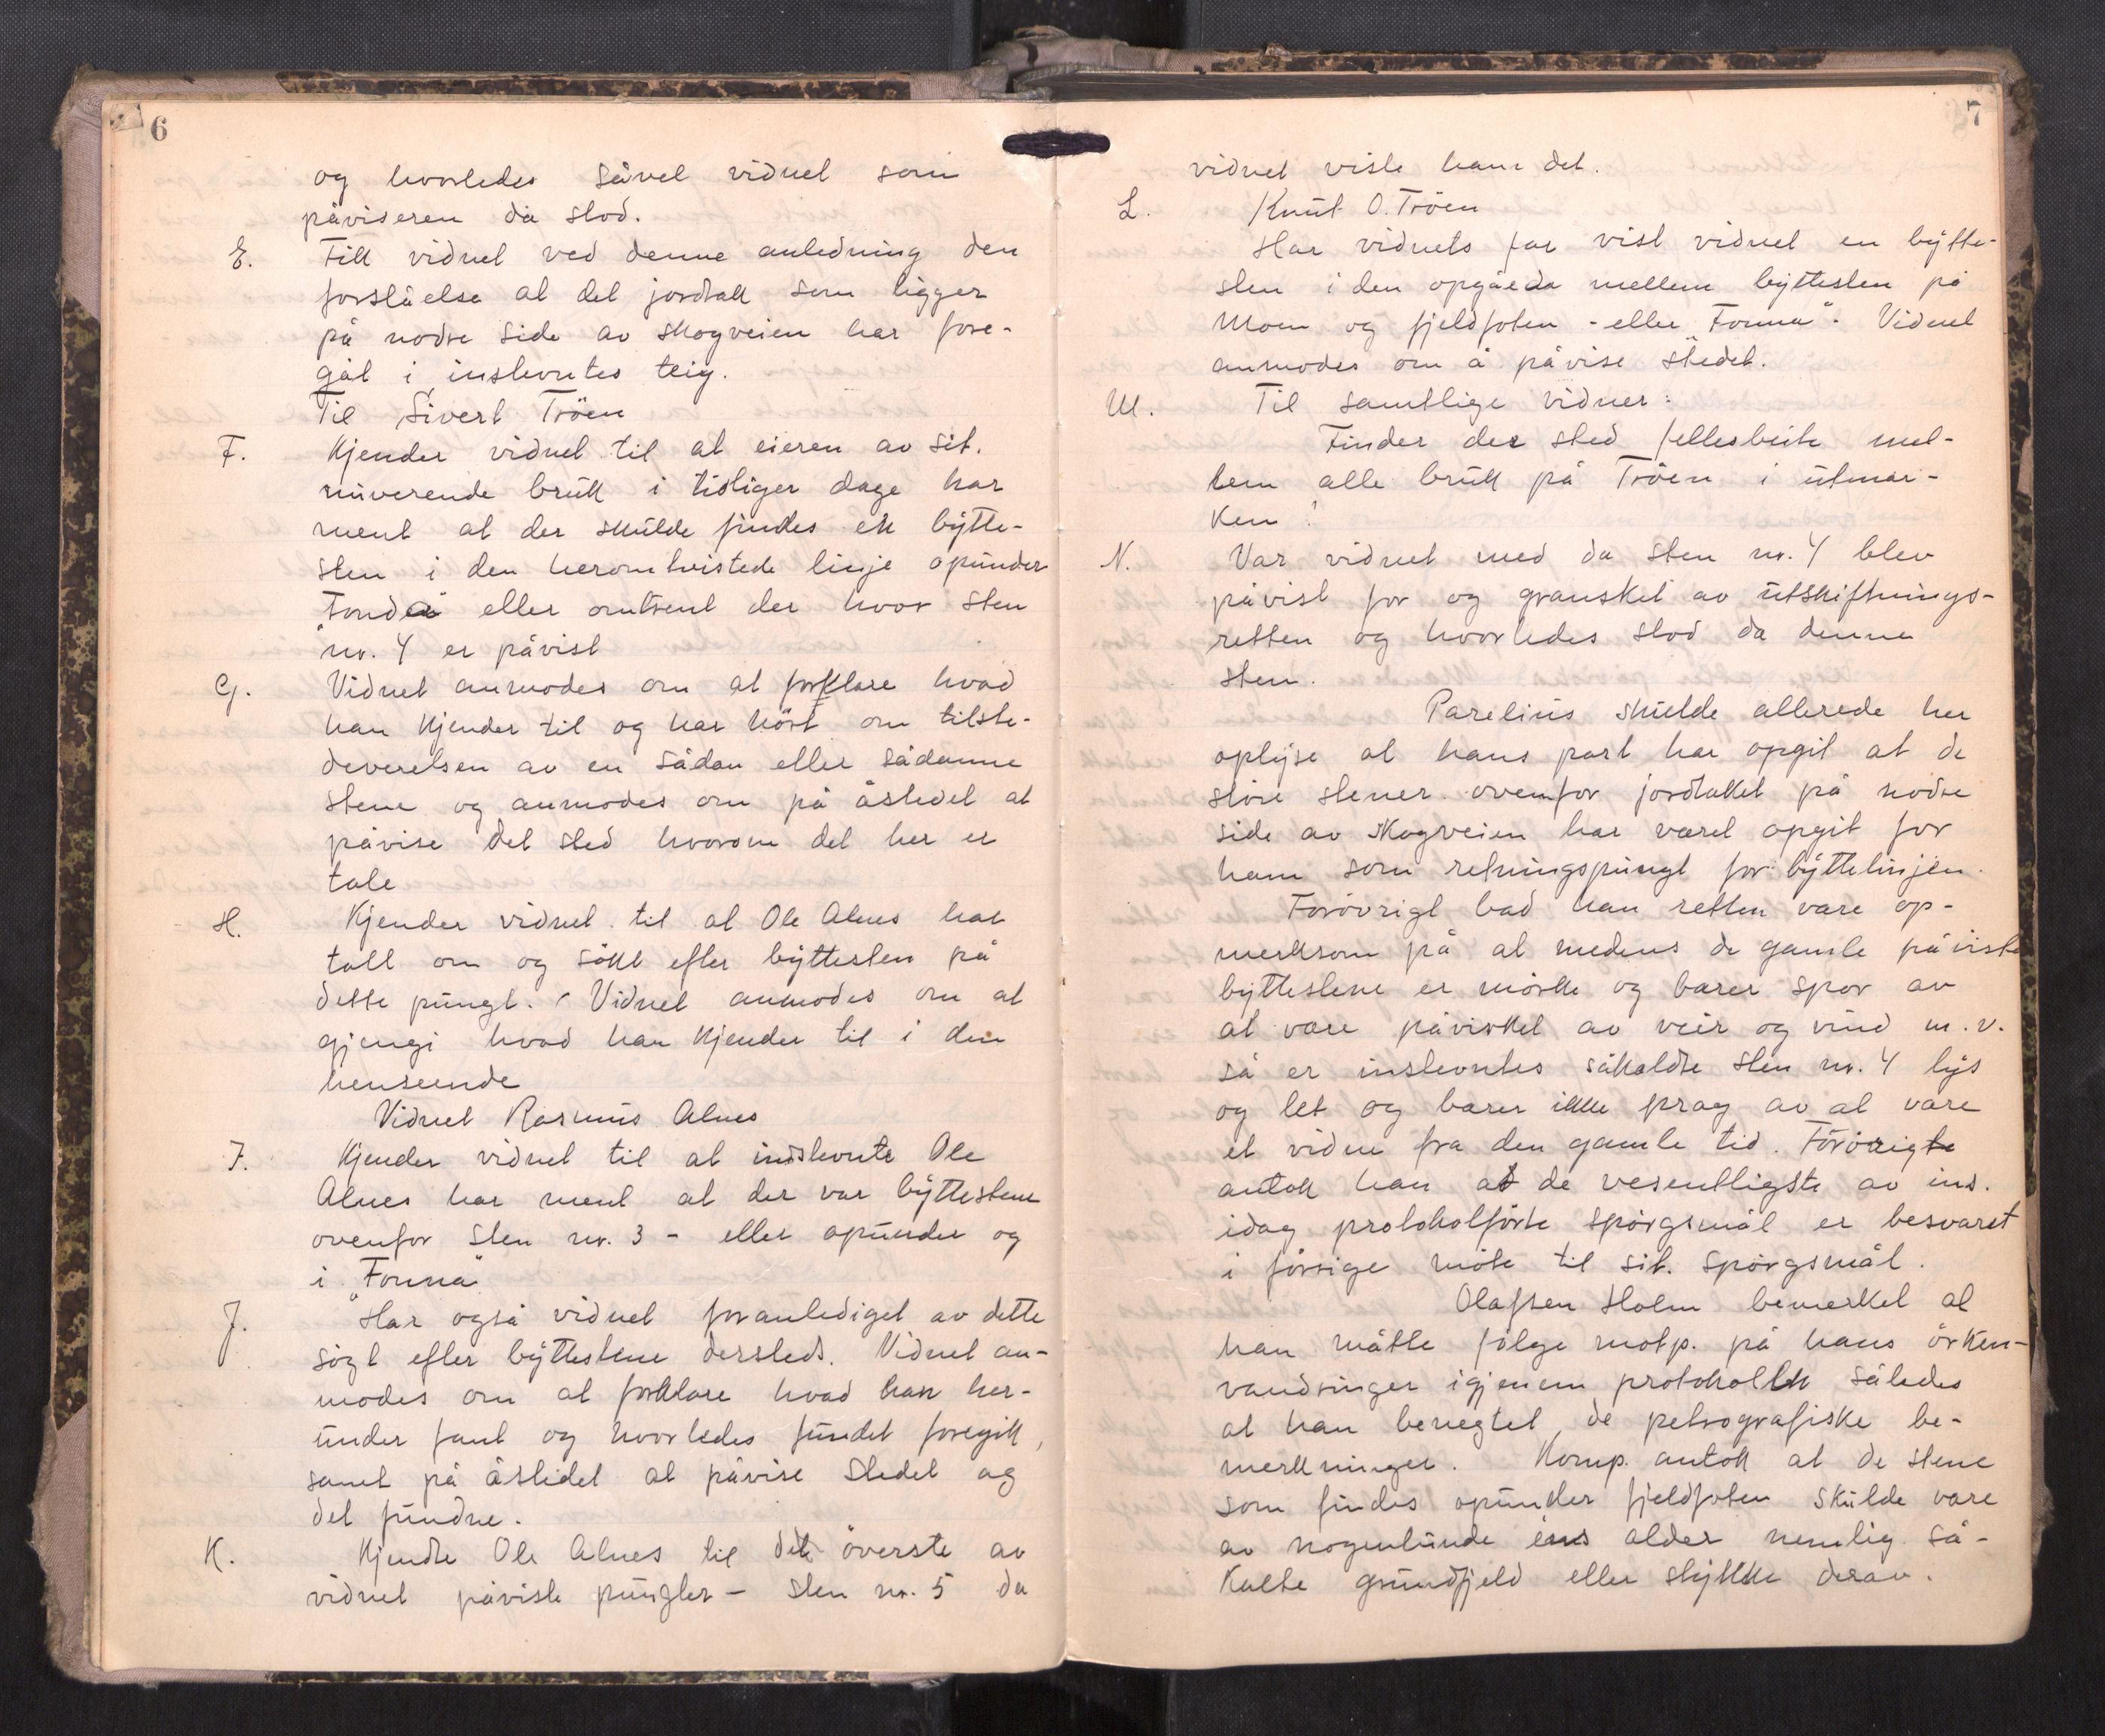 6
og hvorledes såvel vidnet som
påviseren da stod.
E. Fikk vidnet ved denne anledning den
forståelse at det jordtak som ligger
på nodre side av skogveien har fore-
gåt i instevntes teig.
Til Sivert Tröen
F. Kjender vidnet til at eieren av sit.
nuverende bruk i tidliger dage har
ment at der skulde findes en bytte-
sten i den heromtvistede linje opunder
"Fonda" eller omtrent der hvor sten
nr. 4 er påvist
G. Vidnet anmodes om at forklare hvad
han kjender til og har hört om tilste-
deverelsen av en sådan eller sådanne
stene og anmodes om på åstedet at
påvise det sted hvorom det her er
tale
H. Kjender vidnet til at Ole Alnes har
talt om og sökt efter byttesten på
dette pungt. Vidnet anmodes om at
gjengi hvad han kjender til i den
henseende
Vidnet Rasmus Alnes
I. Kjender vidnet til at indstevnte Ole
Alnes har ment at der var byttestene
ovenfor sten nr. 3 - eller opunder og
i "Fonna"
J. Har også vidnet foranlediget av dette
sögt efter byttestene dersteds. Vidnet an-
modes om at forklare hvad han her-
under fant og hvorledes fundet foregik,
samt på åstedet at påvise stedet og
det fundne.
K. Kjendte Ole Alnes til det överste av
vidnet påviste pungter - sten nr. 5 da
7
vidnet viste ham det.
L. Knut O. Tröen
Har vidnets far vist vidnet en bytte-
sten i den opgåede mellem byttesten på
Moen og fjeldfoten - eller "Fonna". Vidnet
anmodes om å påvise stedet.
M. Til samtlige vidner:
Finder der sted fellesbeite mel-
lem alle bruk på Tröen i utmar-
ken?
N. Var vidnet med da sten nr. 4 blev
påvist for og gransket av utskiftnings-
retten og hvorledes stod da denne
sten.
Parelius skulde allerede her
oplyse at hans part har opgit at de
store stener ovenfor jordtaket på nodre
side av skogveien har været opgit for
ham som retningspungt for byttelinjen.
Forövrigt bad han retten vare op-
merksom på at medens de gamle påviste
byttestene er mörke og barer spor av
at vare påvirket av veir og vind m.v.
så er instevntes såkaldte sten nr. 4 lys
og let og barer ikke prag av at vare
et vidne fra den gamle tid. Forövrigt
antok han at de vesentligste av ins.
idag protokolförte spörgsmål er besvaret
i forrige möte til sit. spörgsmål.
Olafsen Holm bemerket at
han måtte fölge motp. på hans örken-
vandringer igjenem protokollen således
at han benegtet de petrografiske be-
merkninger. Komp. antok at de stene
som findes opunder fjeldfoten skulde vare
av nogenlunde éns alder nemlig så-
kalte grundfjeld eller stykke derav.